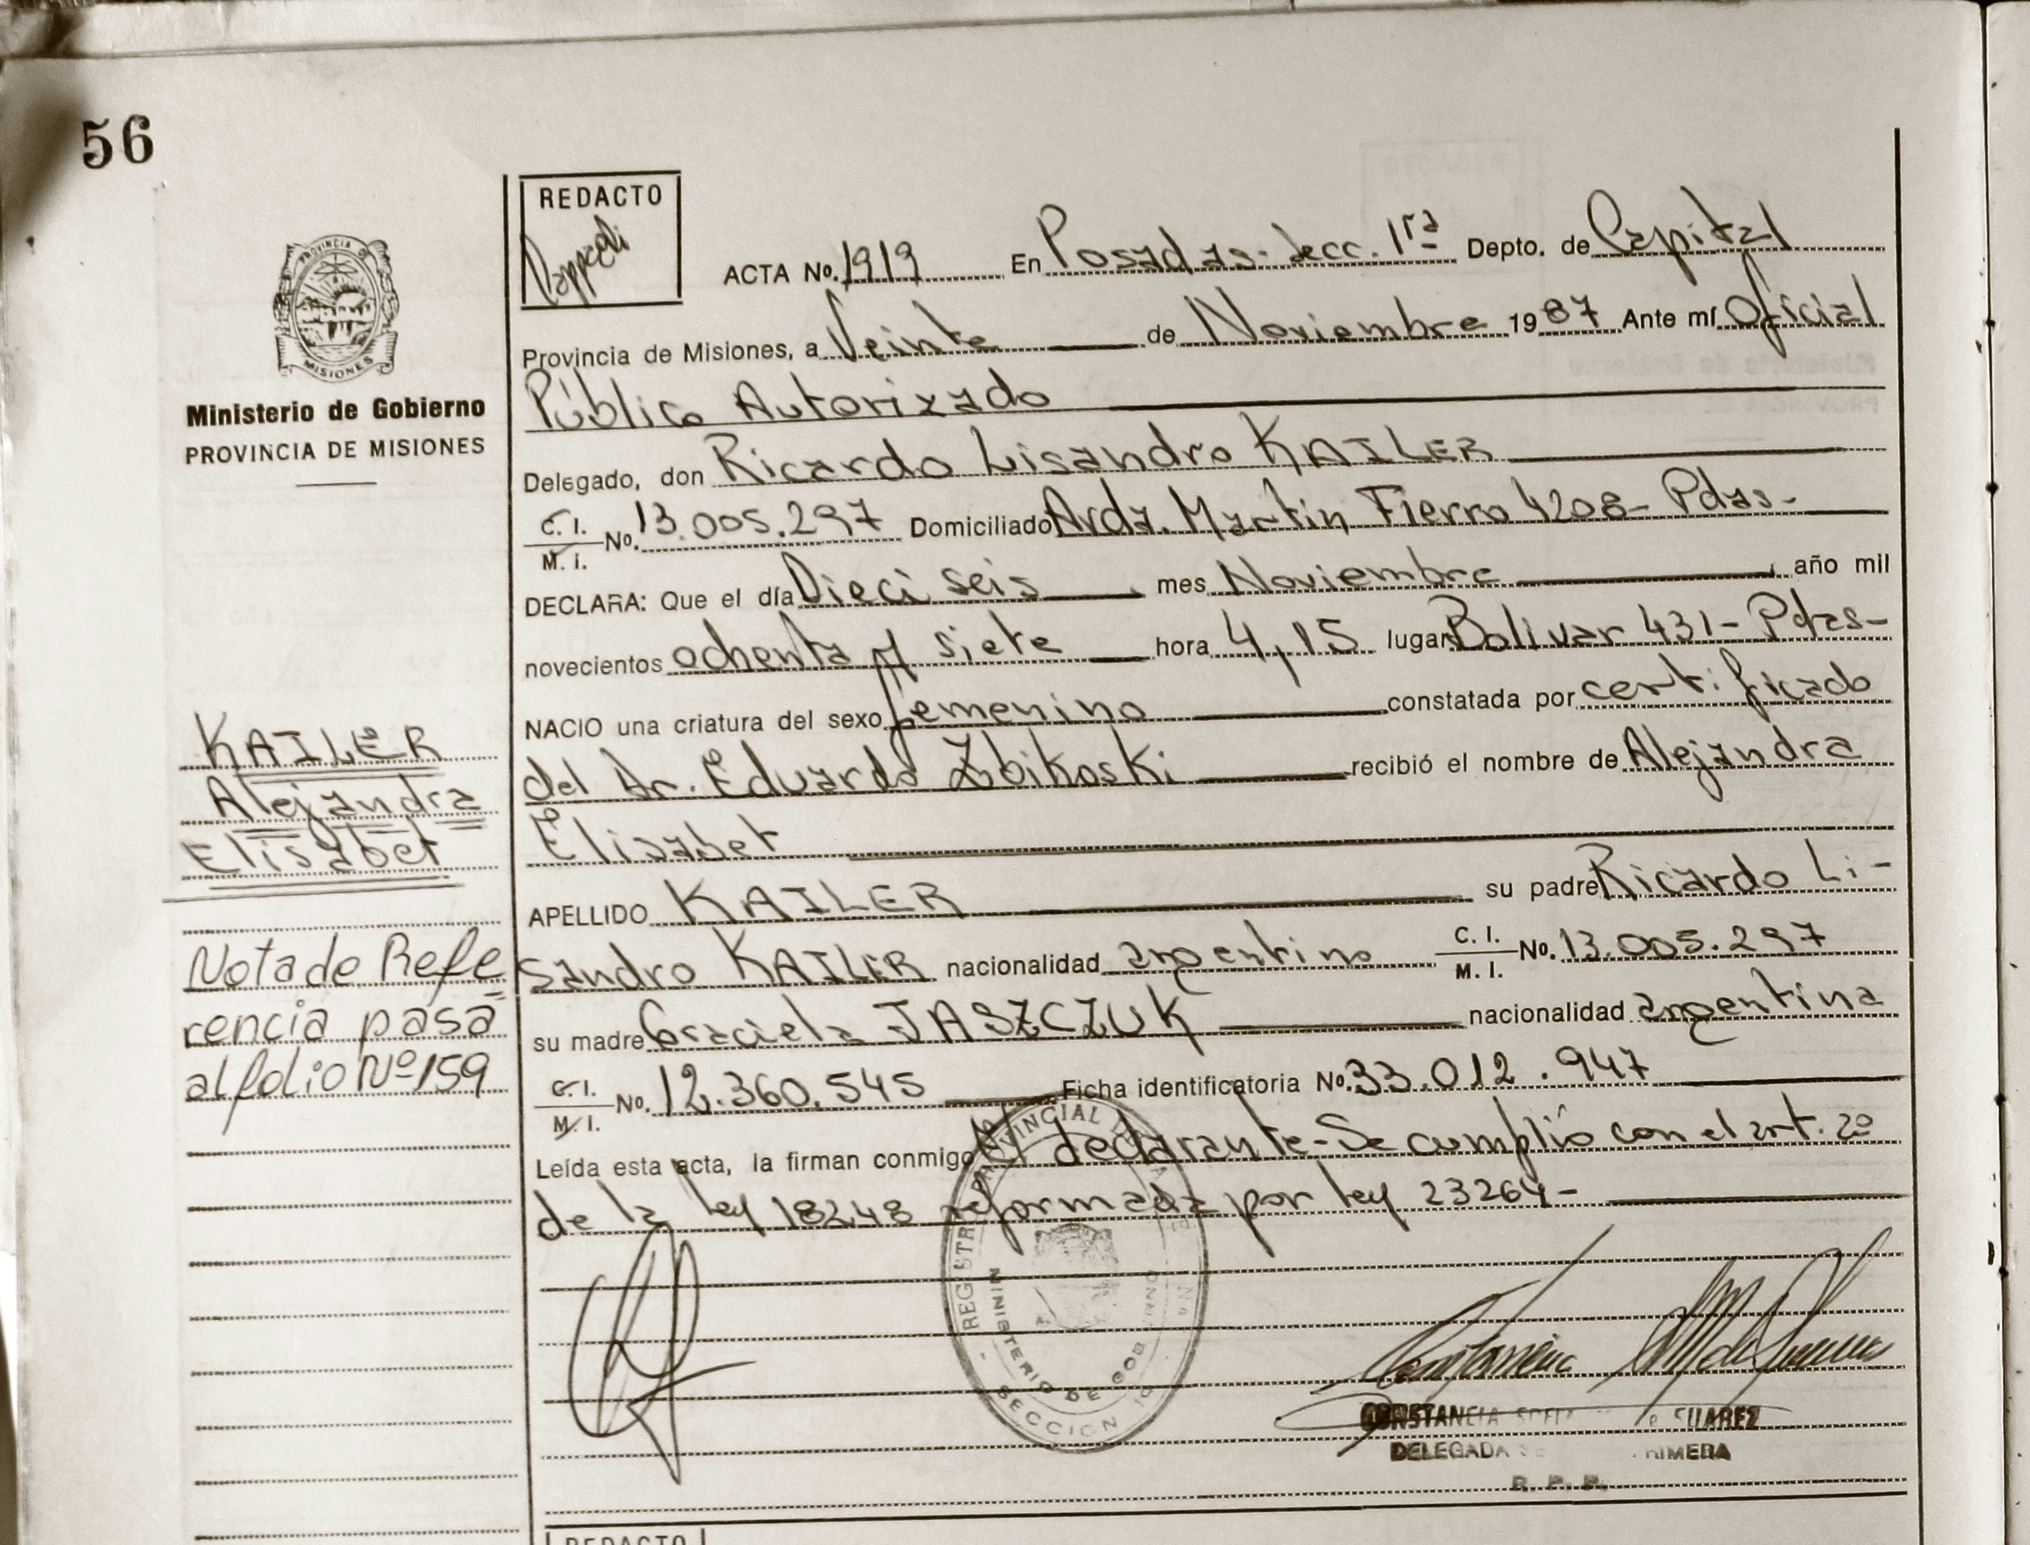 56
REDACTO
PROVINCIA DE
MISIONES
Ministerio de Gobierno
PROVINCIA DE MISIONES
ACTA No. 1919 En Posadas- Secc. 1ra Depto. de Capital
Provincia de Misiones, a Veinte de Noviembre 1987 Ante mí Oficial
Público Autorizado
Delegado, don Ricardo Lisandro KAILER
C. I. / M. I. No. 13.005.297 Domiciliado Avda. Martin Fierro 4208- Pdas-
DECLARA: Que el día Dieci seis mes Noviembre, año mil
novecientos ochenta y siete hora 4,15 lugar Bolivar 431- Pdas-
NACIO una criatura del sexo femenino constatada por certificado
del Dr. Eduardo Zbikoski recibió el nombre de Alejandra
Elisabet
APELLIDO KAILER su padre Ricardo Li-
sandro KAILER nacionalidad argentino C. I. / M. I. No. 13.005.297
su madre Graciela JASZCZUK nacionalidad argentina
C. I. / M. I. No. 12.360.545 Ficha identificatoria No. 33.012.947
Leída esta acta, la firman conmigo el declarante-Se cumplió con el art. 2º
de la ley 18248 reformada por ley 23264-
KAILER
Alejandra
Elisabet
Nota de Refe
rencia pasa
al folio Nº 159
MINISTERIO DE GOBIERNO
SECCION
CONSTANCIA SUAREZ
DELEGADA PRIMERA
R. P. P.
REDACTO